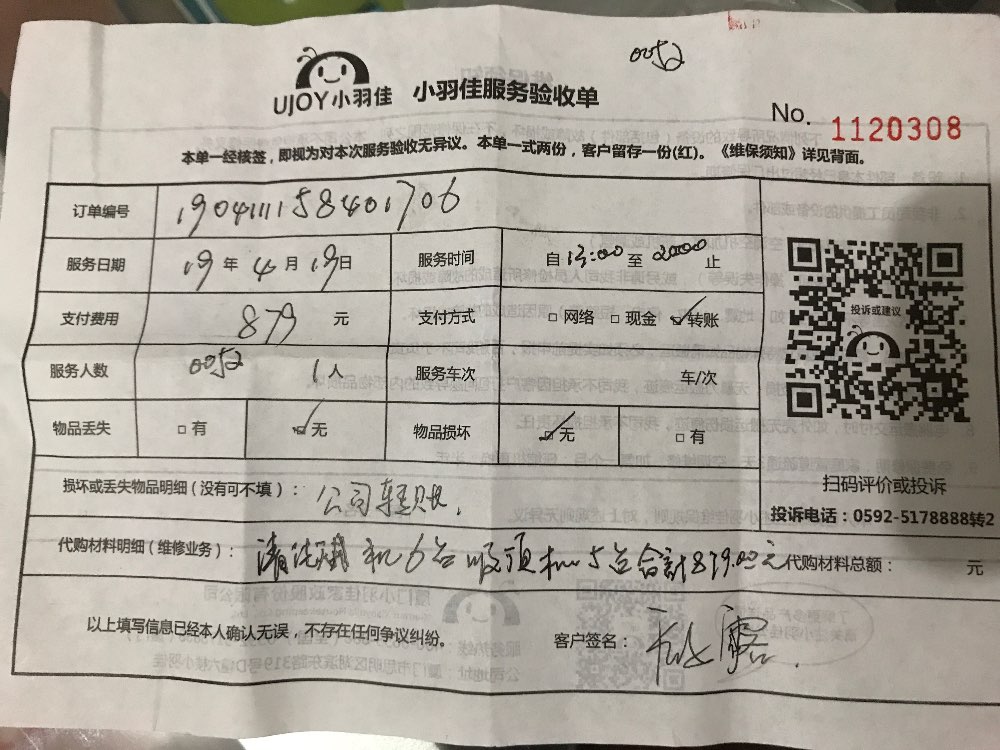 0052
UJOY小羽佳 小羽佳服务验收单
No. 1120308
本单一经核签，即视为对本次服务验收无异议。本单一式两份，客户留存一份(红)。《维保须知》详见背面。
订单编号 1904111158401706
服务日期 19年4月19日 服务时间 自13:00至2000止
支付费用 879 元 支付方式 □网络 □现金 ☑转账
投诉或建议
服务人数 0052 1人 服务车次 车/次
物品丢失 □有 ☑无 物品损坏 ☑无 □有
扫码评价或投诉
损坏或丢失物品明细（没有可不填）： 公司转账.
投诉电话：0592-5178888转2
代购材料明细（维修业务）： 清洗 机6台 吸顶机5台合计879.00元 代购材料总额： 元
以上填写信息已经本人确认无误，不存在任何争议纠纷。 客户签名：